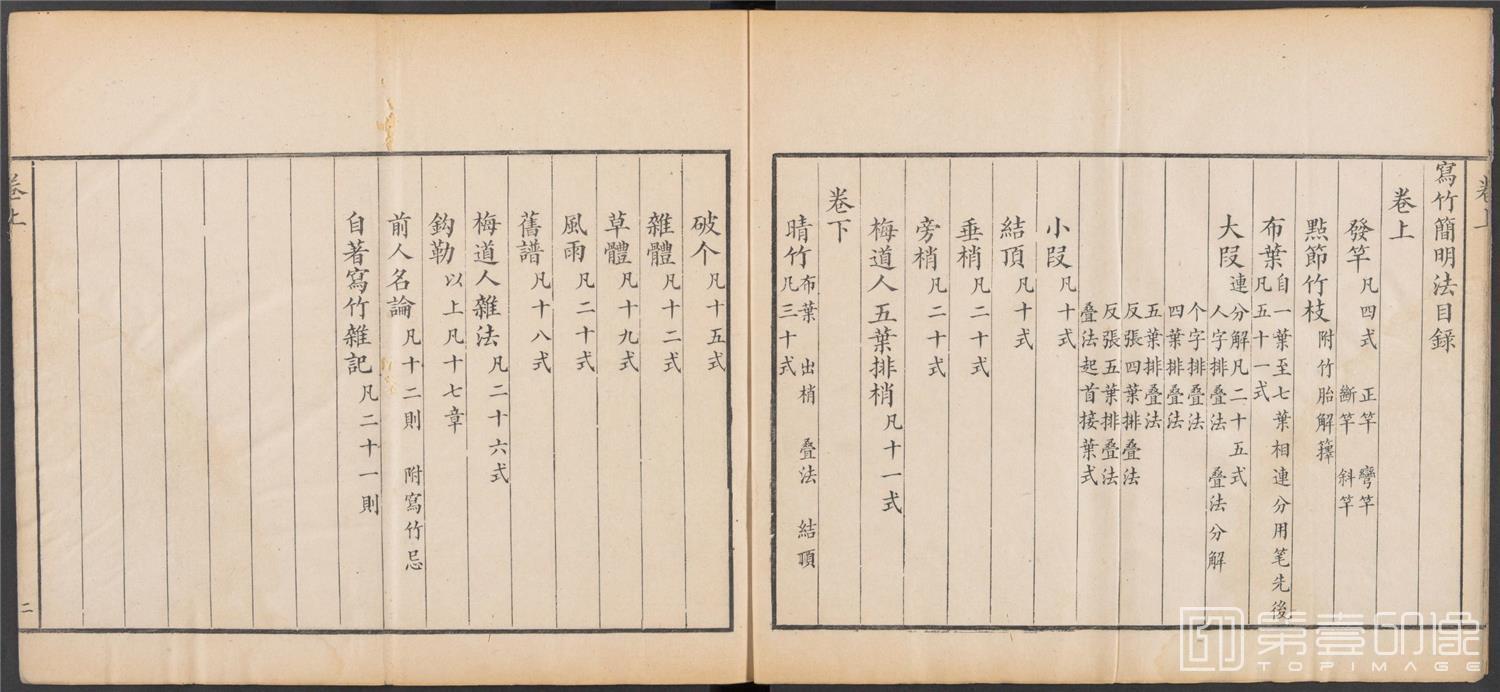 卷上
寫竹簡明法目錄
卷上
發竿 凡四式 正竿 彎竿
斷竿 斜竿
點節竹枝 附竹胎解籜
布葉 自一葉至七葉相連分用笔先後
凡五十一式
大段 分解凡二十五式 叠法分解
連人字排叠法
个字排叠法
四葉排叠法
五葉排叠法
反張四葉排叠法
反張五葉排叠法
叠法起首接葉式
小段 凡十式
結頂 凡十式
垂梢 凡二十式
旁梢 凡二十式
梅道人五葉排梢 凡十一式
卷下
晴竹 布葉 出梢 叠法 結頂
凡三十式
破个 凡十五式
雜體 凡十二式
草體 凡十九式
風雨 凡二十式
舊譜 凡十八式
梅道人雜法 凡二十六式
鈎勒 以上凡十七章
前人名論 凡十二則 附寫竹忌
自著寫竹雜記 凡二十一則
卷上
二
第壹印像
TOPIMAGE